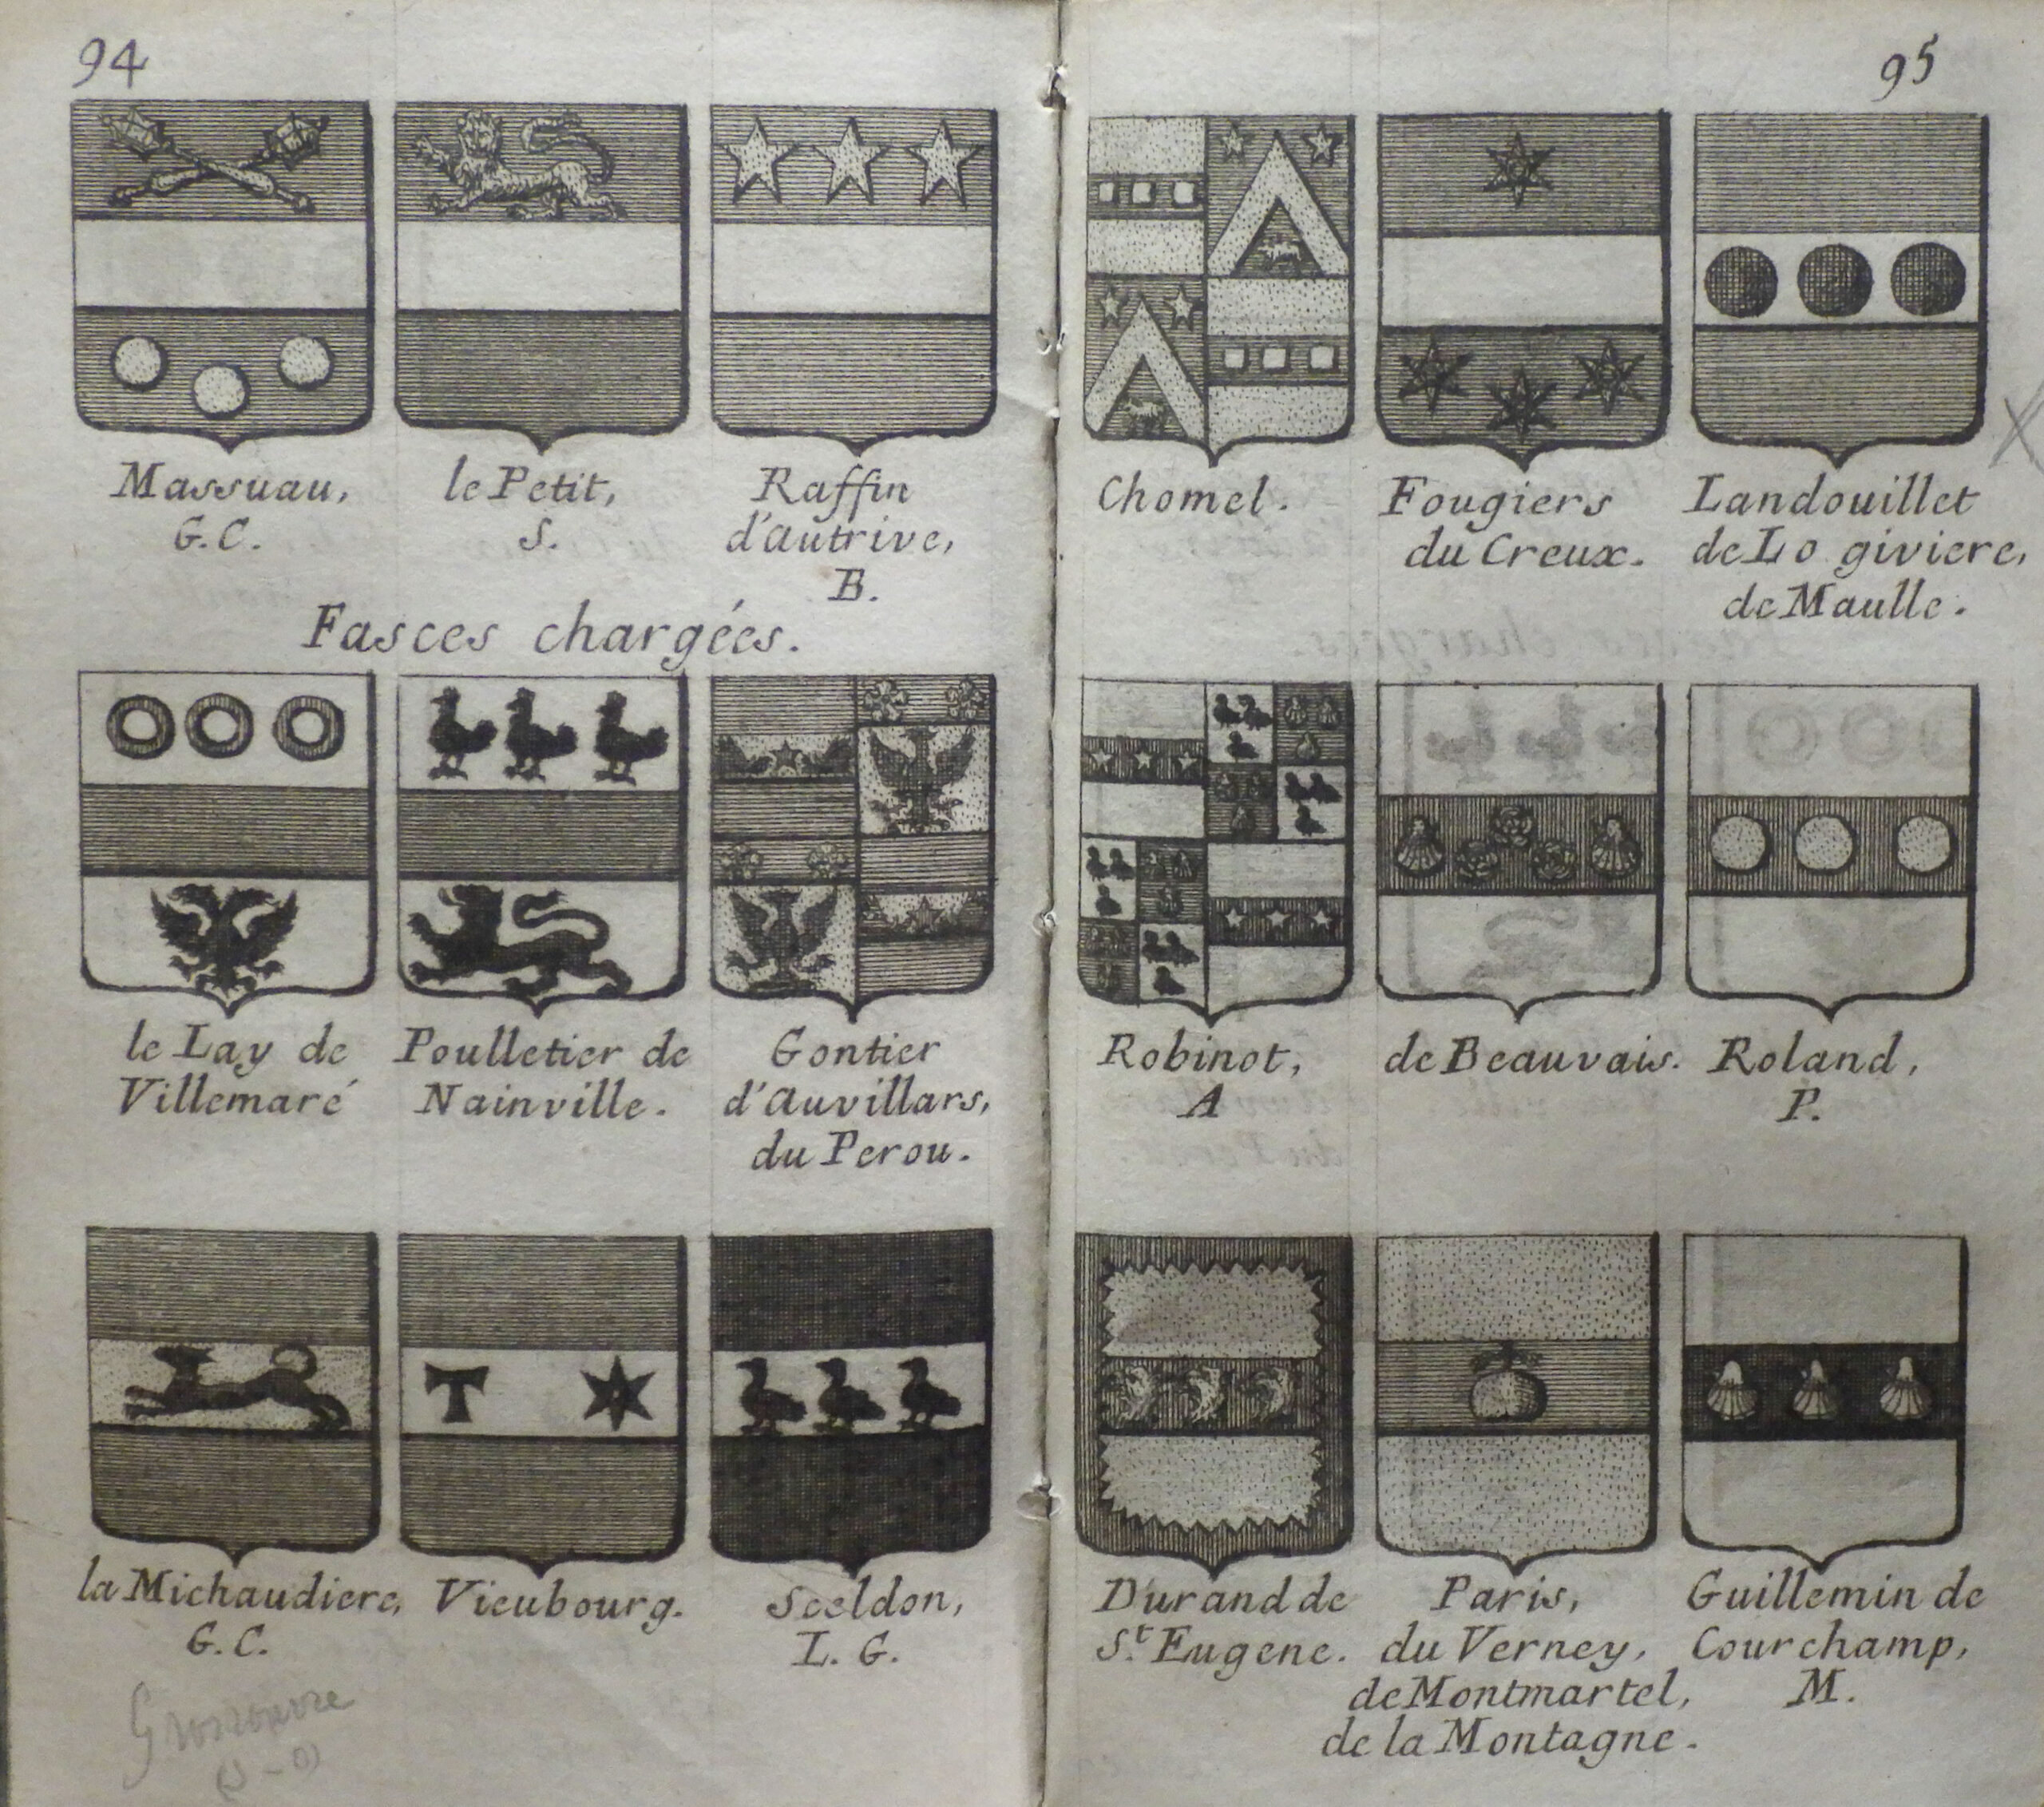 94
Massuau,
G. C.
le Petit,
S.
Raffin
d'autrive,
B.
Fasces chargées.
le Lay de
Villemaré
Poulletier de
Nainville.
Gontier
d'auvillars,
du Perou.
la Michaudiere,
G. C.
Vieubourg.
Seeldon,
L. G.
95
Chomel.
Fougiers
du Creux.
Landouillet
de Lo giviere,
de Maulle.
Robinot,
A
de Beauvais.
Roland,
P.
Durand de
St. Eugene.
Paris,
du Verney,
de Montmartel,
de la Montagne.
Guillemin de
Courchamp,
M.